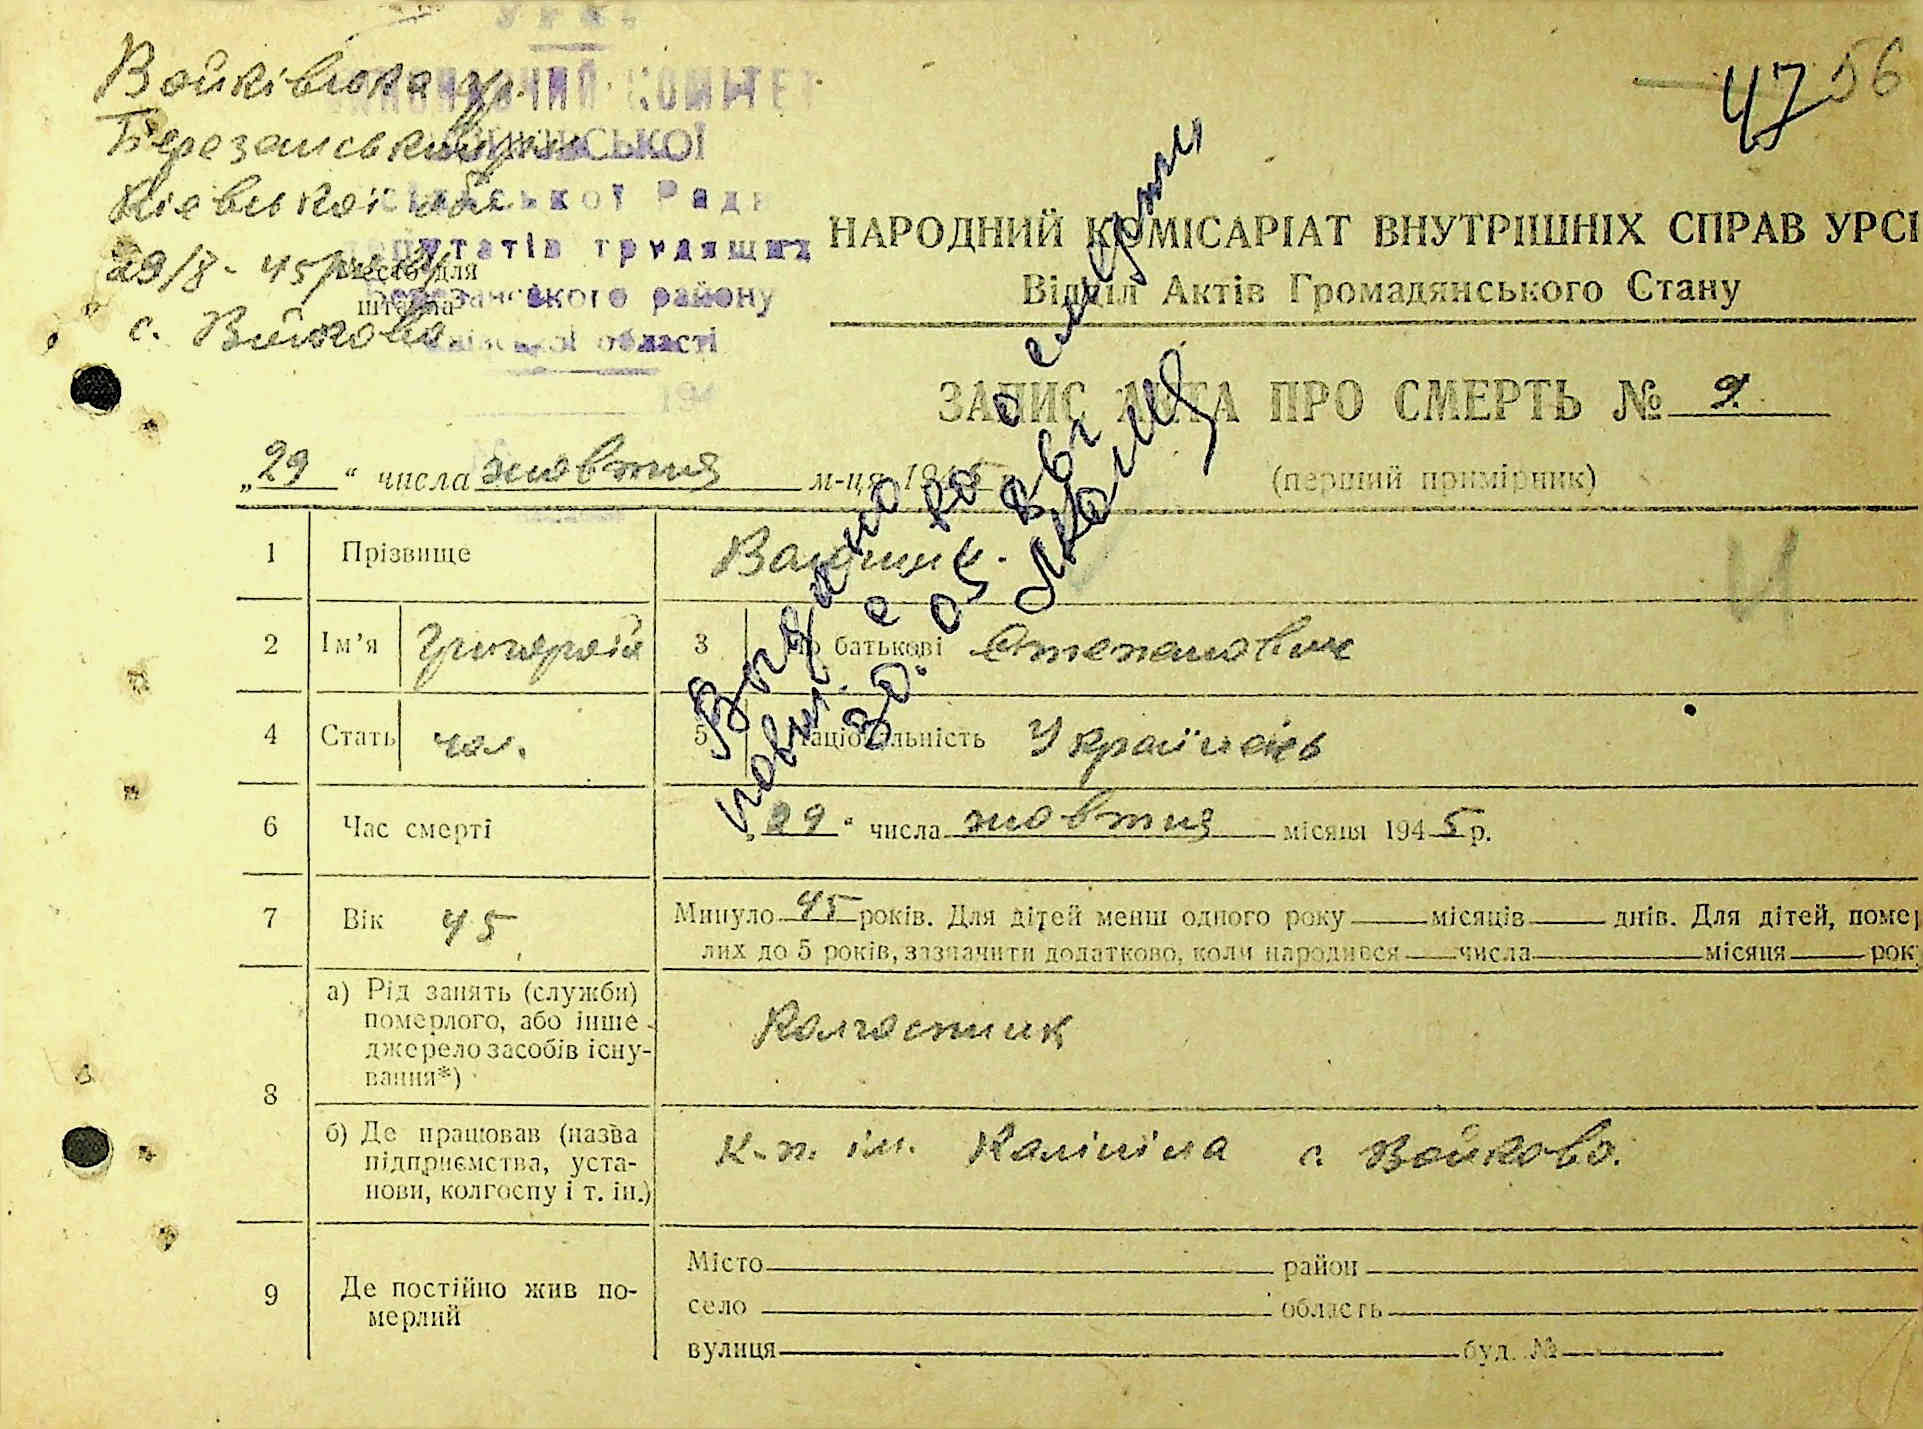 47 56
Войківська
Березанського
Київської обл
29/8-45р.
с. Войково
Місце для
штампа
КОМІТЕТ
сільської Ради
депутатів трудящих
Березанського району
Київської області
194
НАРОДНИЙ КОМІСАРІАТ ВНУТРІШНІХ СПРАВ УРСР
Відділ Актів Громадянського Стану
ЗАПИС АКТА ПРО СМЕРТЬ №
„29“ числа жовтня м-ця 1945
(перший примірник)
1 Прізвище
2 Ім'я Григорій 3 По батькові Степанович
4 Стать чол. 5 Національність Українець
6 Час смерті „29“ числа жовтня місяця 1945 р.
7 Вік 45 Минуло 45 років. Для дітей менш одного року місяців днів. Для дітей, помер
лих до 5 років, зазначити додатково, коли народився числа місяця рок
8 а) Рід занять (служби)
померлого, або інше
джерело засобів існу-
вання*)
Колгоспник
б) Де працював (назва
підприємства, уста-
нови, колгоспу і т. ін.)
к-п. ім. Калініна с. Войково.
9 Де постійно жив по-
мерлий
Місто район
село область
вулиця буд. №
Видано
повт. с-во о смерти